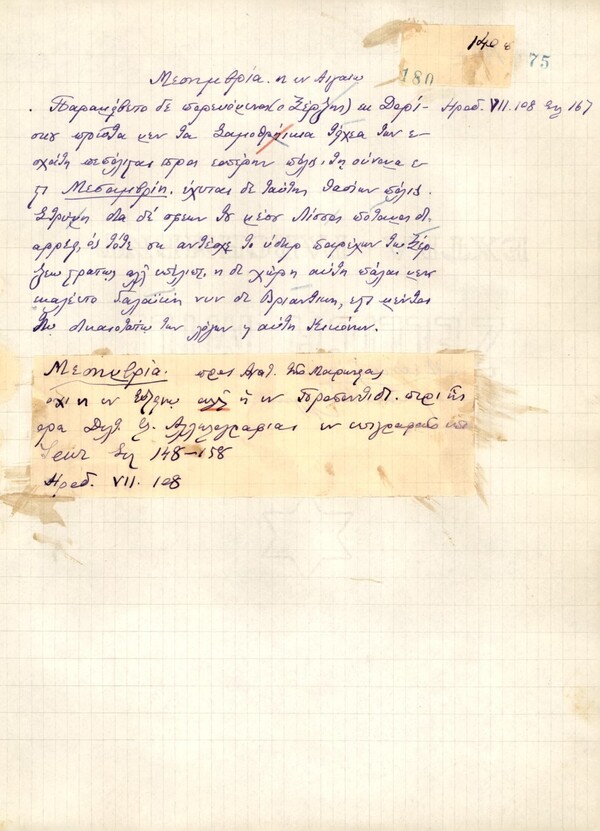 140
180
75
Μεσημβρία. η εν Αιγαίω
. Παραμείβετο δε πορευόμενος (ο Ξέρξης) εκ Δορί- Ηροδ. VII. 108 Σελ 167
σκου πρώτα μεν τα Σαμοθρηίκια τείχεα των ε-
σχάτη πεπόλισται προς εσπέρην πόλις τη ούνομα ε-
στι Μεσαμβρίη. έχεται δε ταύτης Θασίων πόλις
Στρύμη δια δέ σφεων του μέσου Λίσσος ποταμός δι-
αρρέει, ός τότε ουκ αντέσχε το ύδωρ παρέχων τω Ξέρ-
ξεω στρατώ αλλ' επέλιπε, η δε χώρη αύτη πάλαι μεν
καλέετο Γαλαϊκή νυν δε Βριαντική, εστι μέντοι
τω δικαιοτάτω των λόγων η αύτη Κικόνων.
Μεσημβρία. προς Ανατ. της Μαρωνείας
όχι η εν Ευξείνω αλλ' η εν Προποντίδι. περί ης
όρα Αλληλογραφίας εν
Σελ 148-158
Ηροδ. VII. 108